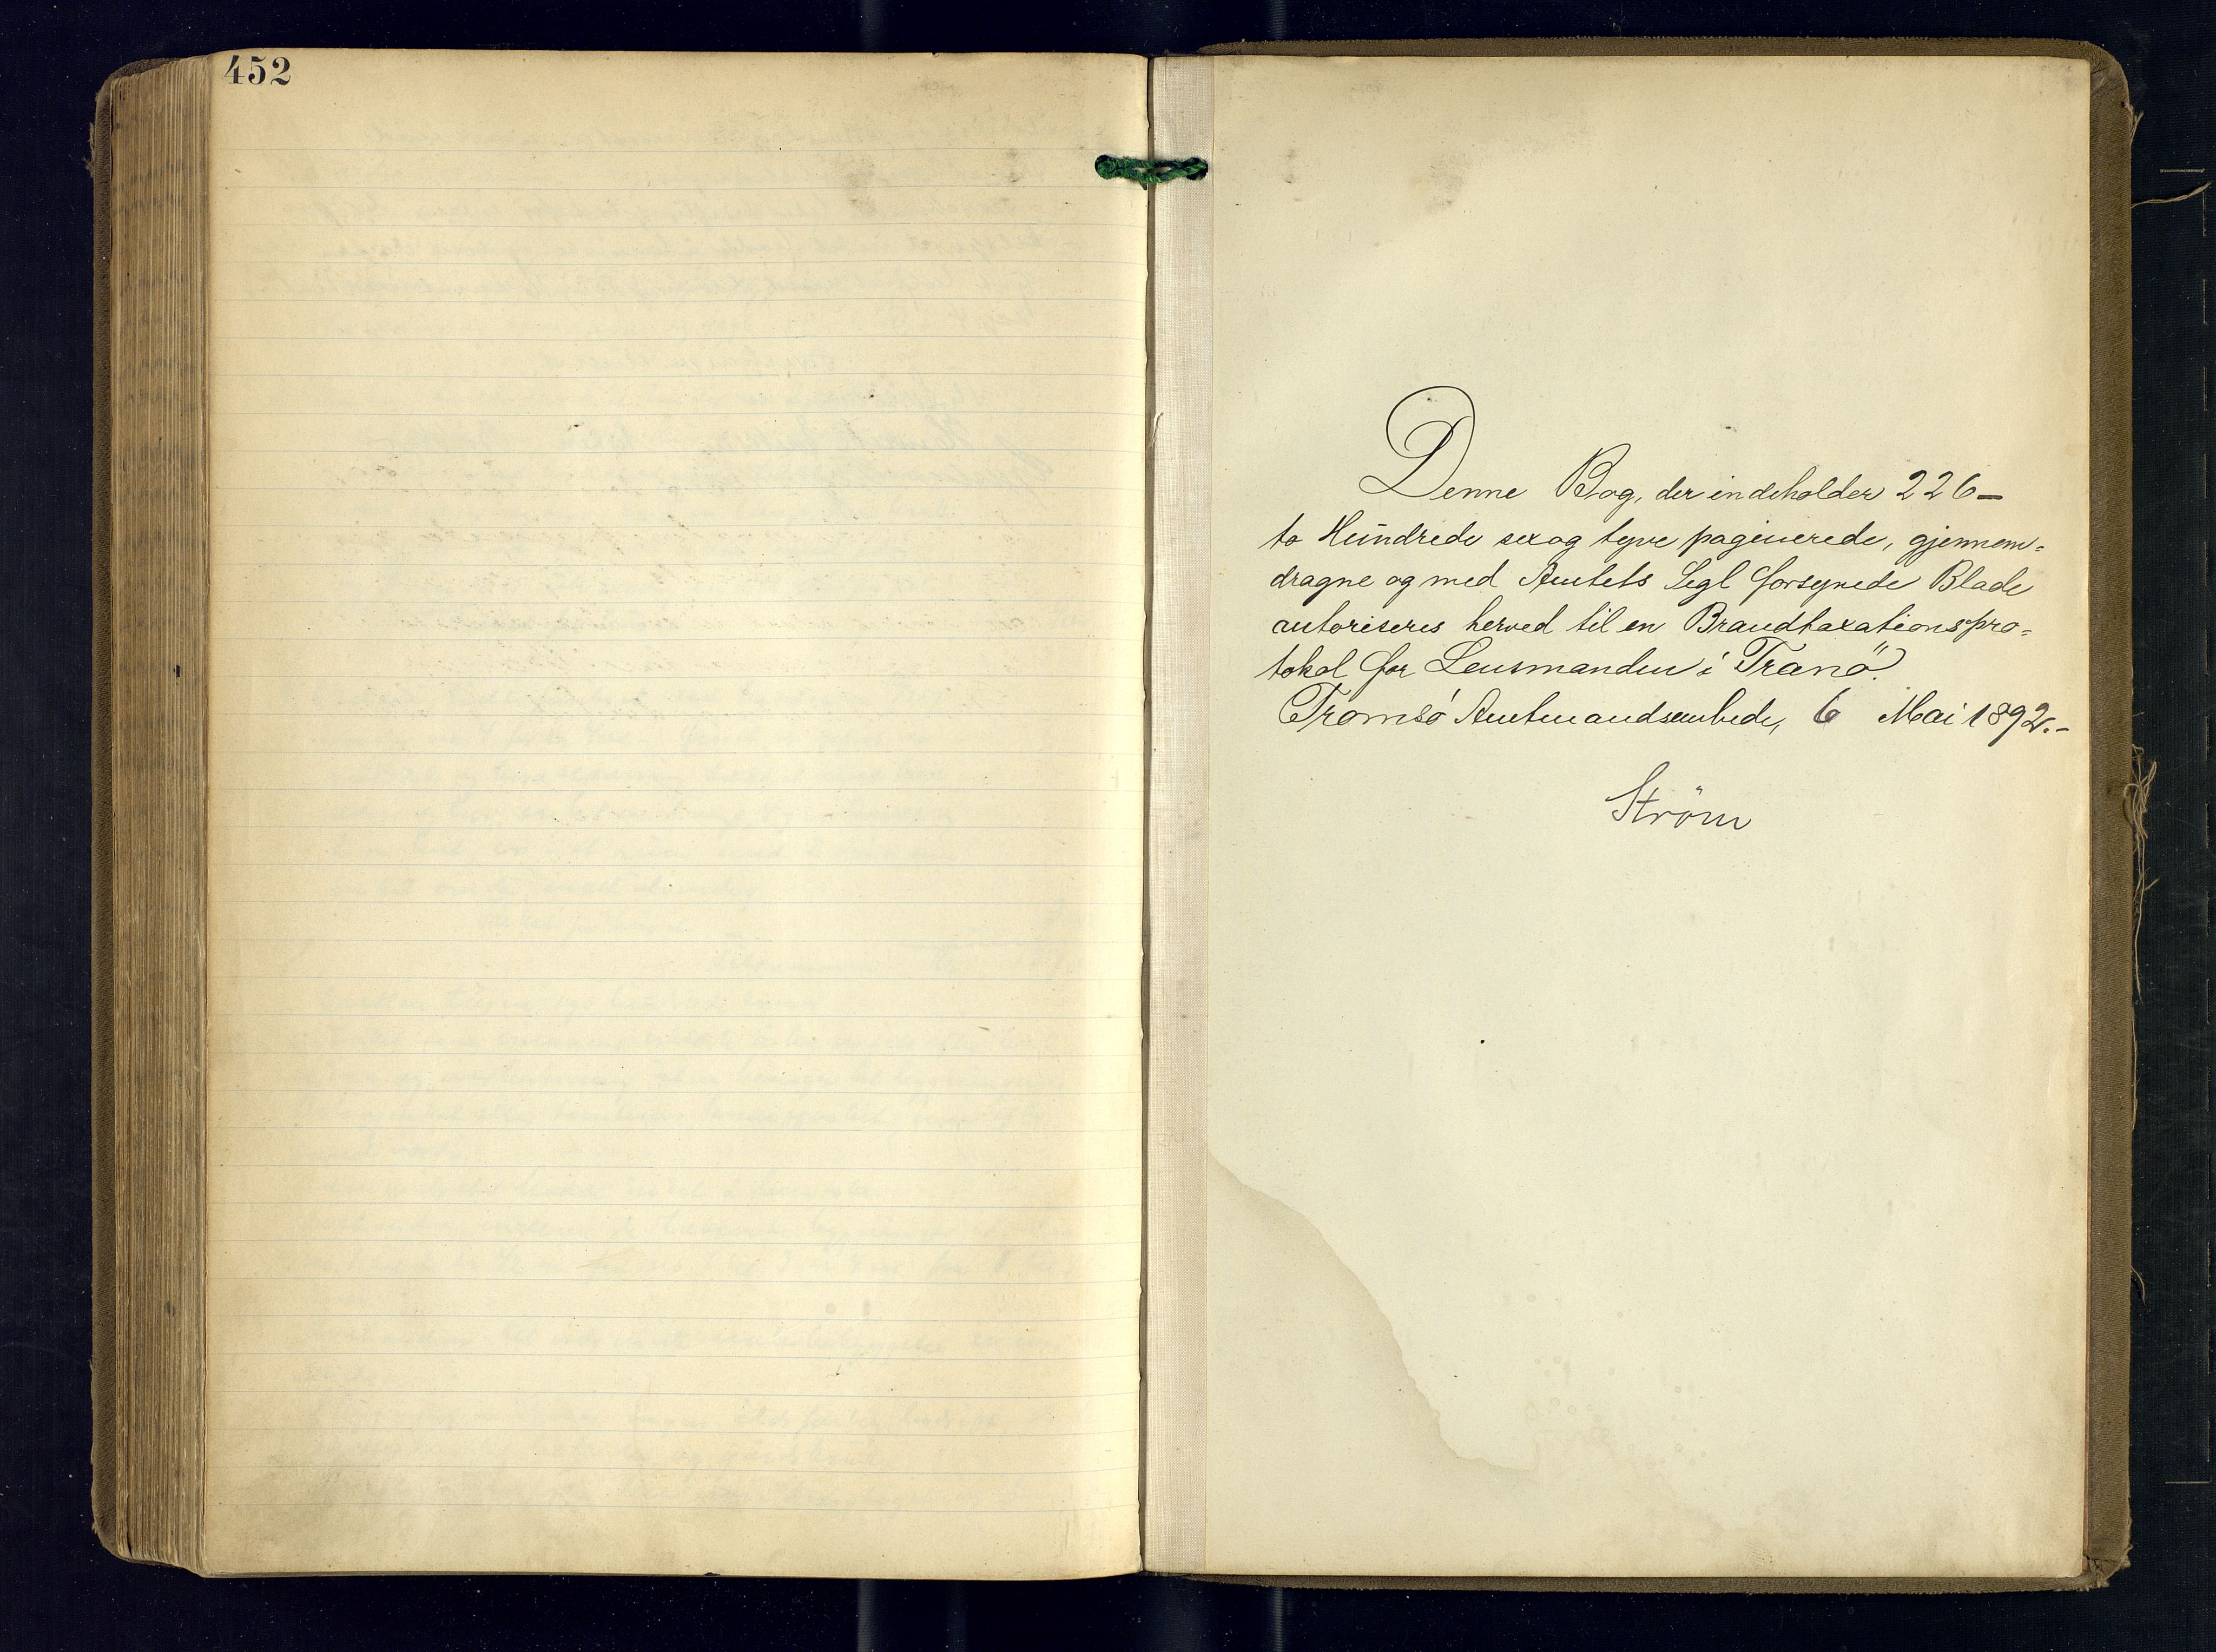 452
Denne Bog, der indeholder 226 –
to Hundrede sex og tyve paginerede, gjennem=
dragne og med Amtets Segl forsynede Blade
autoriseres herved til en Brandtaxationspro=
tokol for Lensmanden i Tranö.
Tromsö Amtmandsembede, 6 Mai 1892.-
Ström